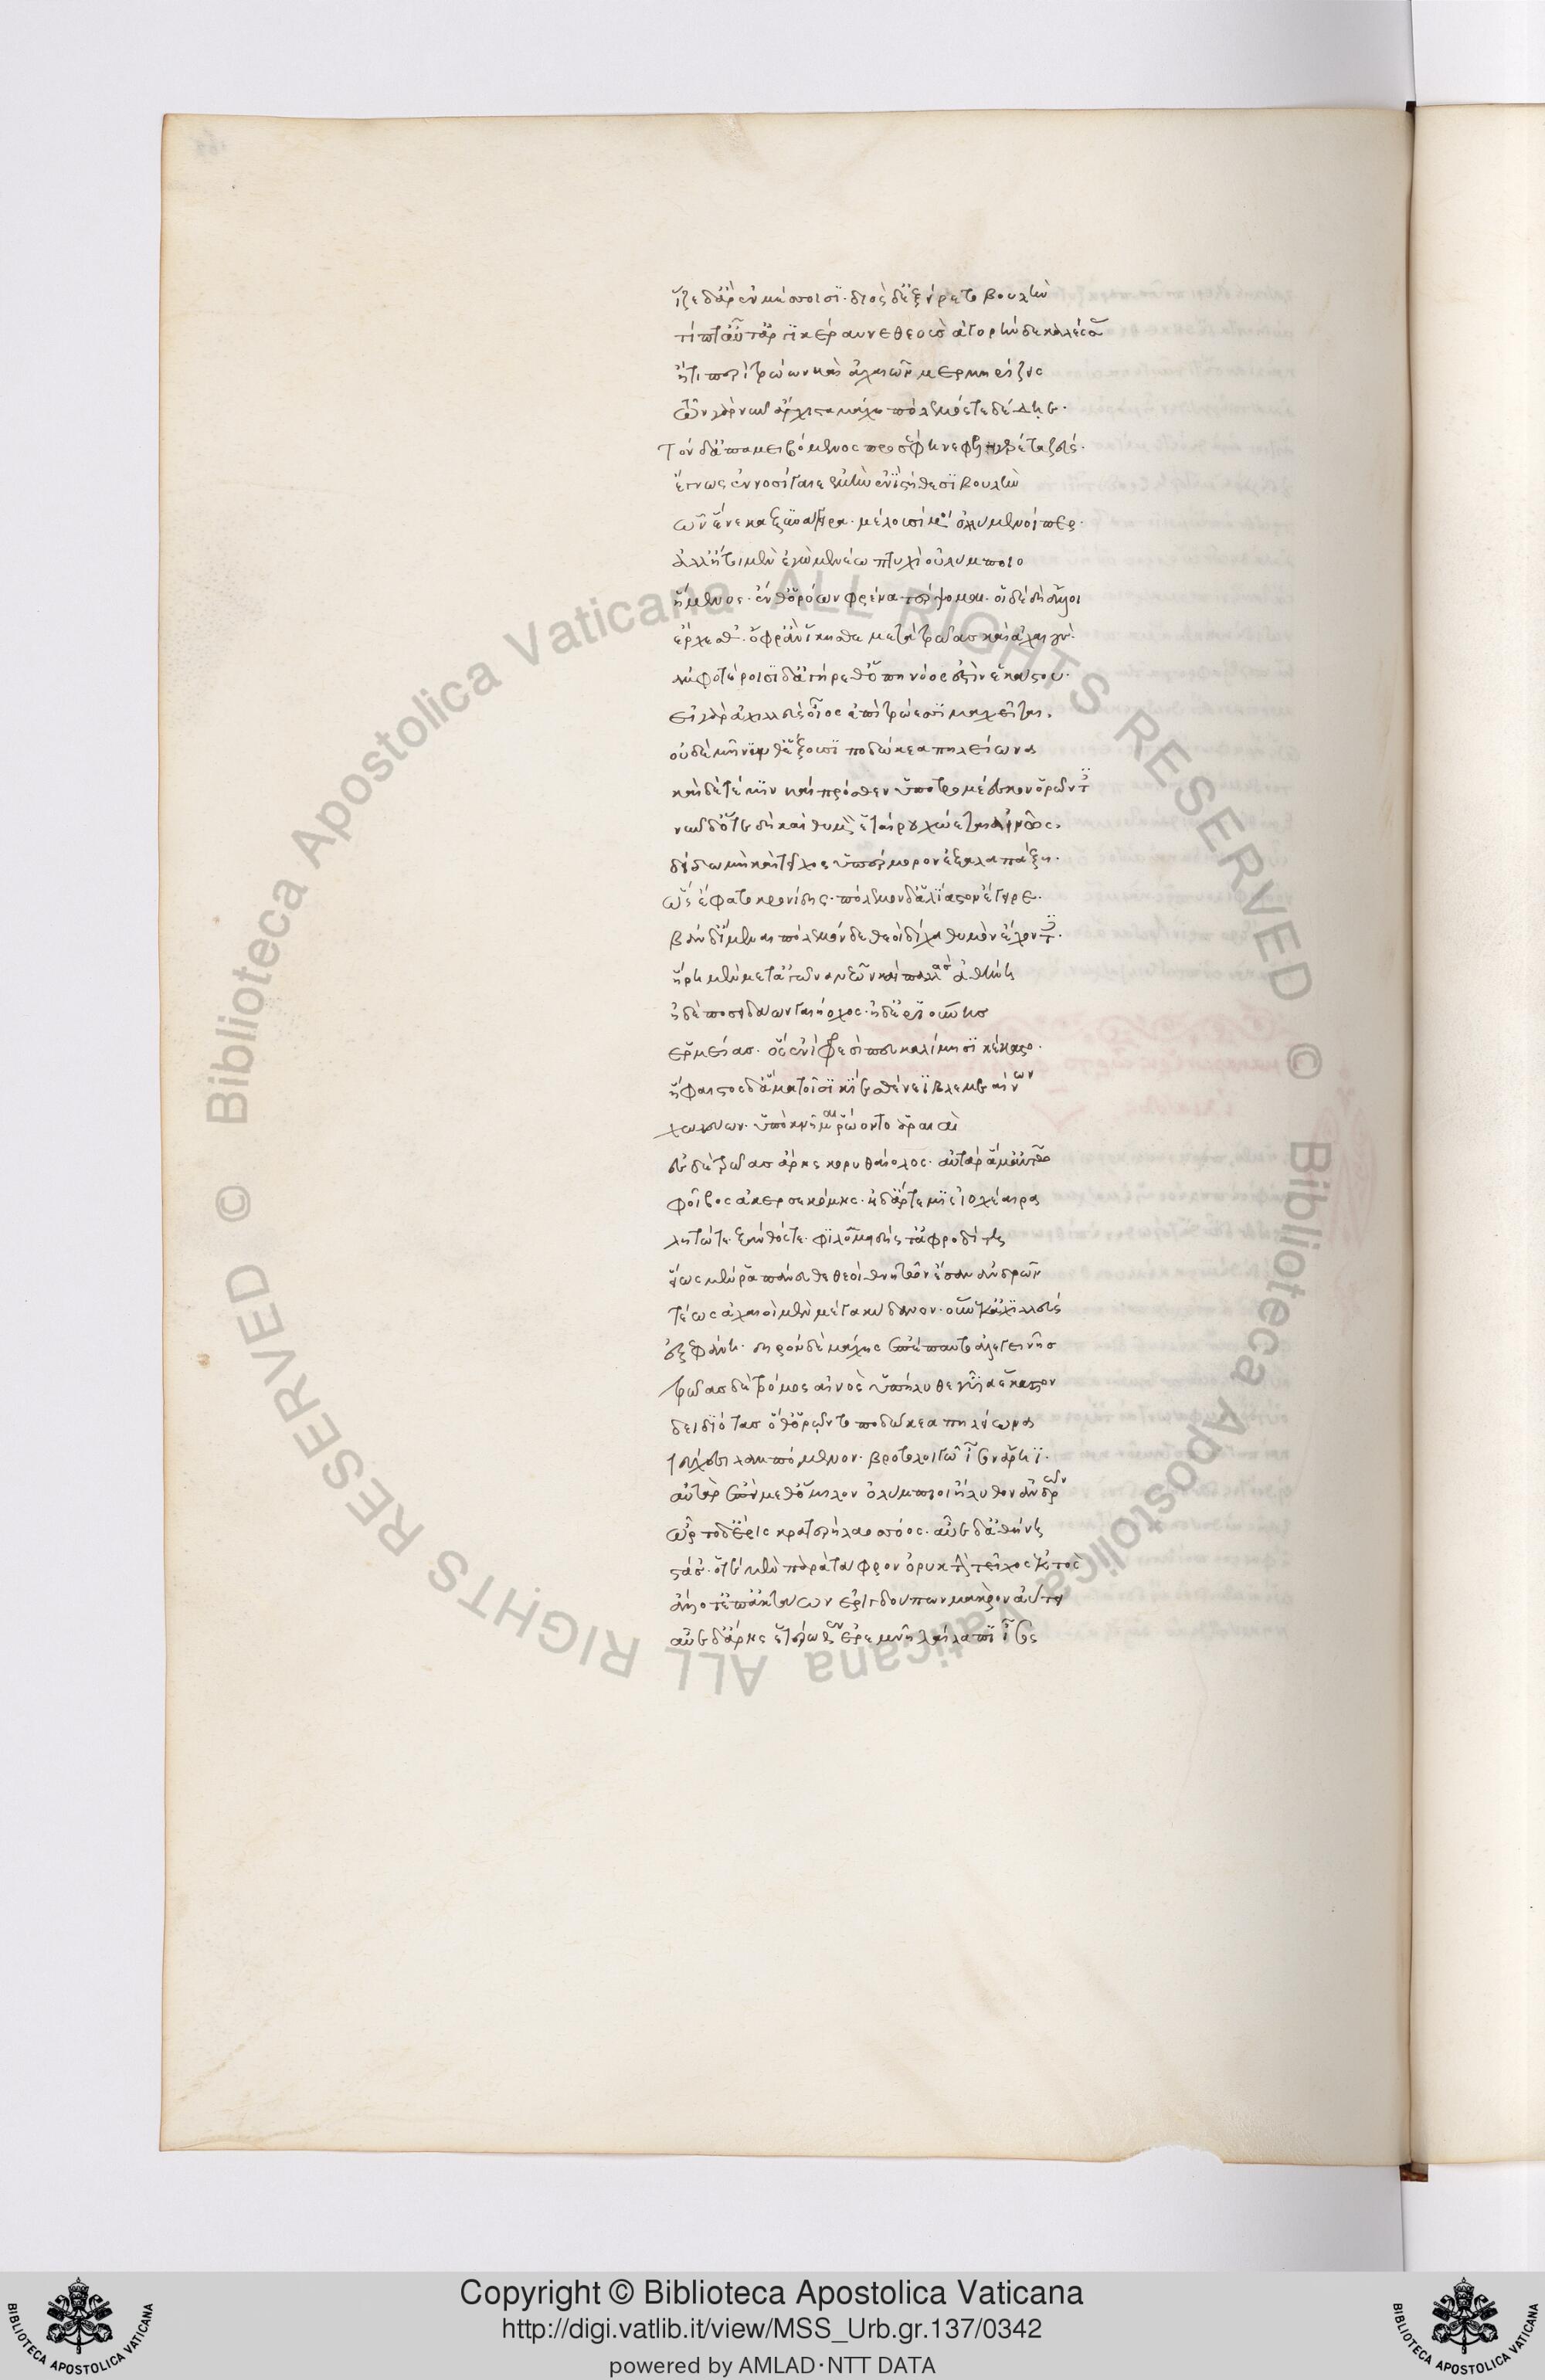 ἷζε δ' ἄρ' ἐν μέσσοισι· διὸς δ' ἐξείρετο βουλὴν
τίπτ' αὖτ' ἀργικέραυνε θεοὺς ἀγορὴν δὲ κάλεσσας
ἦ τι περὶ τρώων καὶ ἀχαιῶν μερμηρίζεις
τῶν γὰρ νῦν ἄγχιστα μάχη πόλεμός τε δέδηε.
Τὸν δ' ἀπαμειβόμενος προσέφη νεφεληγερέτα ζεύς.
ἔγνως ἐννοσίγαιε ἐμὴν ἐν στήθεσι βουλὴν
ὧν ἕνεκα ξυνάγειρα· μέλουσί μοι ὀλλύμενοί περ.
ἀλλ' ἤτοι μὲν ἐγὼ μενέω πτυχὶ οὐλύμποιο
ἥμενος· ἔνθ' ὁρόων φρένα τέρψομαι· οἱ δὲ δὴ ἄλλοι
ἔρχεσθ'· ὄφρ' ἂν ἵκησθε μετὰ τρῶας καὶ ἀχαιούς.
ἀμφοτέροισι δ' ἀρήγεθ' ὅπη νόος ἐστὶν ἑκάστου.
εἰ γὰρ ἀχιλλεὺς οἶος ἐπὶ τρώεσσι μαχεῖται.
οὐδὲ μίνυνθ' ἕξουσι ποδώκεα πηλείωνα
καὶ δέ τέ μιν καὶ πρόσθεν ὑποτρομέεσκον ὁρῶντες
νῦν δ' ὅτε δὴ καὶ θυμὸν ἑταίρου χώεται αἰνῶς.
δείδω μὴ καὶ τεῖχος ὑπὲρ μόρον ἐξαλαπάξῃ.
ὣς ἔφατο κρονίδης· πόλεμον δ' ἀλίαστον ἔγειρε.
βὰν δ' ἴμεναι πόλεμόνδε θεοὶ δίχα θυμὸν ἔχοντες.
ἥρη μὲν μετ' ἀγῶνα νεῶν καὶ παλλὰς ἀθήνη
ἠδὲ ποσειδάων γαιήοχος· ἠδ' ἐριούνης
ἑρμείας· ὃς ἐνὶ φρεσὶ πευκαλίμῃσι κέκαστο.
ἥφαιστος δ' ἅμα τοῖσι κίε σθένεϊ βλεμεαίνων
χωλεύων· ὑπὸ δὲ κνῆμαι ῥώοντο ἀραιαὶ
ἐς δὲ τρῶας ἄρης κορυθαίολος· αὐτὰρ ἅμ' αὐτῷ
φοῖβος ἀκερσεκόμης· ἠδ' ἄρτεμις ἰοχέαιρα
λητώ τε· ξάνθός τε· φιλομμειδής τ' ἀφροδίτη
ἕως μέν ῥ' ἀπάνευθε θεοὶ θνητῶν ἔσαν ἀνδρῶν
τέως ἀχαιοὶ μὲν μέγα κύδανον· οὕνεκ' ἀχιλλεὺς
ἐξεφάνη· δηρὸν δὲ μάχης ἐπέπαυτ' ἀλεγεινῆς
τρῶας δὲ τρόμος αἰνὸς ὑπήλυθε γυῖα ἕκαστον
δειδιότας ὅθ' ὁρῶντο ποδώκεα πηλείωνα
τεύχεσι λαμπόμενον· βροτολοιγῷ ἶσον ἄρηϊ.
αὐτὰρ ἐπεὶ μεθ' ὅμιλον ὀλύμπιοι ἤλυθον ἀνδρῶν
ὦρτο δ' ἔρις κρατερὴ λαοσσόος· αὖε δ' ἀθήνη
στᾶσ'· ὁτὲ μὲν παρὰ τάφρον ὀρυκτὴν τείχεος ἐκτὸς
ἄλλοτ' ἐπ' ἀκτάων ἐριγδούπων μακρὸν ἀΰτει
αὖε δ' ἄρης ἑτέρωθεν ἐρεμνῇ λαίλαπι ἶσος
© Biblioteca Apostolica Vaticana ALL RIGHTS RESERVED © Biblioteca Apostolica Vaticana ALL RIGHTS RESERVED
Copyright © Biblioteca Apostolica Vaticana
http://digi.vatlib.it/view/MSS_Urb.gr.137/0342
powered by AMLAD·NTT DATA
BIBLIOTECA APOSTOLICA VATICANA
BIBLIOTECA APOSTOLICA VATICANA